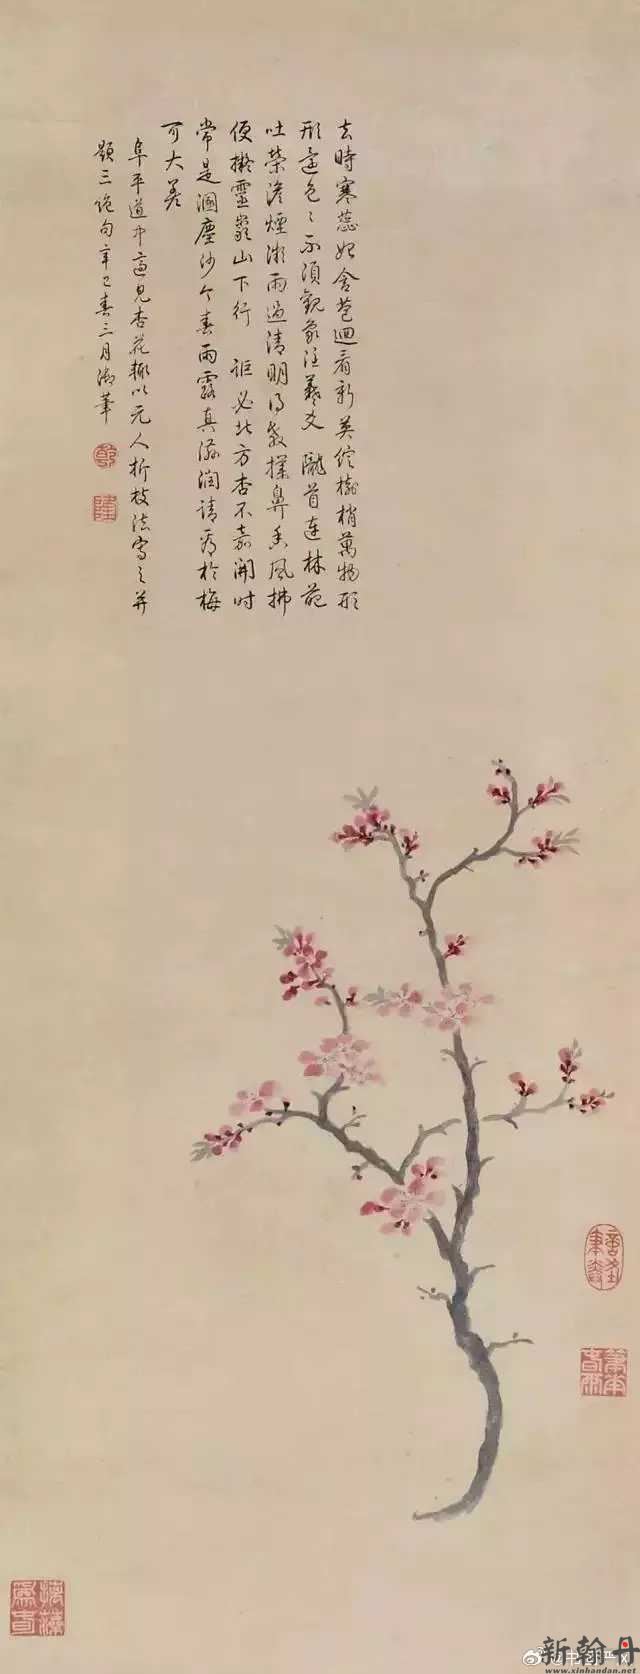 去時寒蕊始含苞迴看新英綻樹梢萬物形
形還色〻不須觀象注羲爻 隴首連林葩
吐榮澹煙微雨過清明得教撲鼻香風拂
便擬靈巖山下行 詎必北方杏不嘉開時
常是涸塵沙今春雨露真滋潤請看於梅
可大差
阜平道中適見杏花輒以元人折枝法寫之并
題三絶句辛巳春三月御筆
乾
隆
新翰丹
www.xinhandan.net